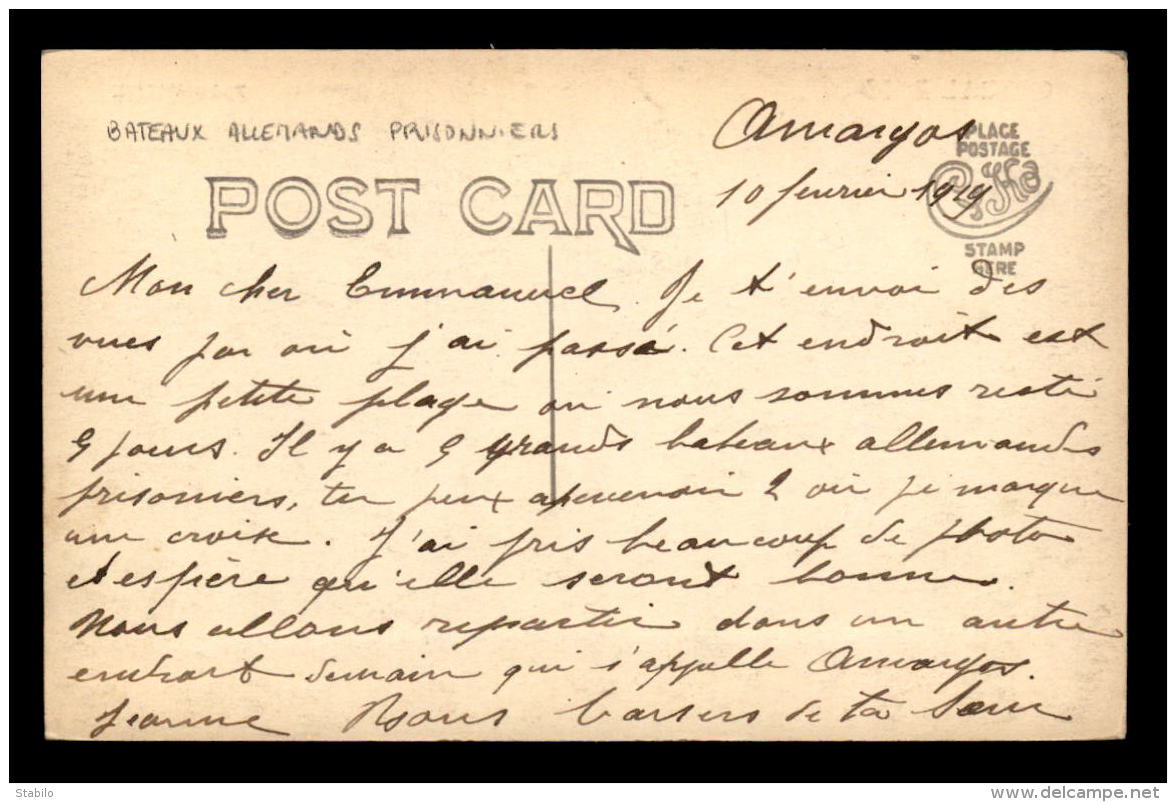 BATEAUX ALLEMANDS PRISONNIERS
Amargos
10 fevrier 1919
PLACE
POSTAGE
STAMP
HERE
POST CARD
Mon cher Emmanuel. Je t'envoi des
vues par où j'ai passé. Cet endroit est
une petite plage où nous sommes resté
9 jours. Il y a 9 grands bateaux allemands
prisoniers, tu peux apercevoir 2 où je marque
une croix. J'ai pris beaucoup de photo
et espère qu'elle seront bonne.
Nous allons repartir dans un autre
endroit demain qui s'appelle Amargos.
Jeanne Bons baisers de ta Sœur
Stabilo
www.delcampe.net